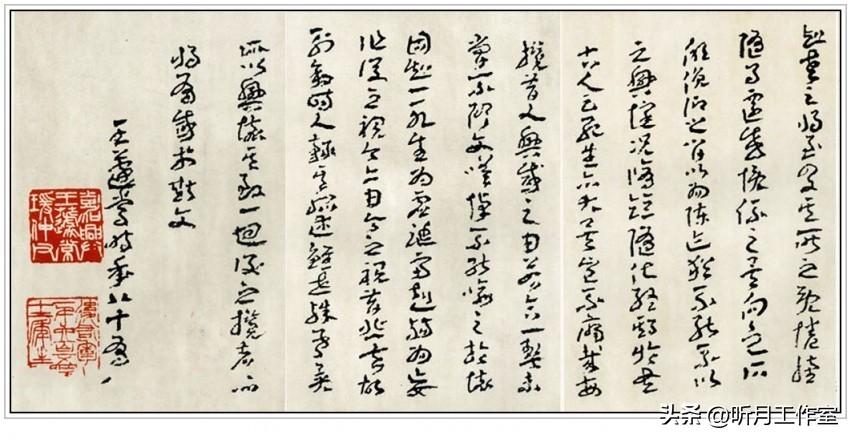 知老之將至及其所之既倦情
隨事遷感慨係之矣向之所
欣俛仰之間以為陳迹猶不能不以
之興懷況脩短隨化終期於盡
古人云死生亦大矣豈不痛哉每
攬昔人興感之由若合一契未
嘗不臨文嗟悼不能喻之於懷
固知一死生為虛誕齊彭殤為妄
作後之視今亦由今之視昔悲夫故
列敘時人錄其所述雖世殊事異
所以興懷其致一也後之攬者亦
將有感於斯文
王蘧常時年八十有
嘉興王蘧常瑗仲父
头条 @听月工作室